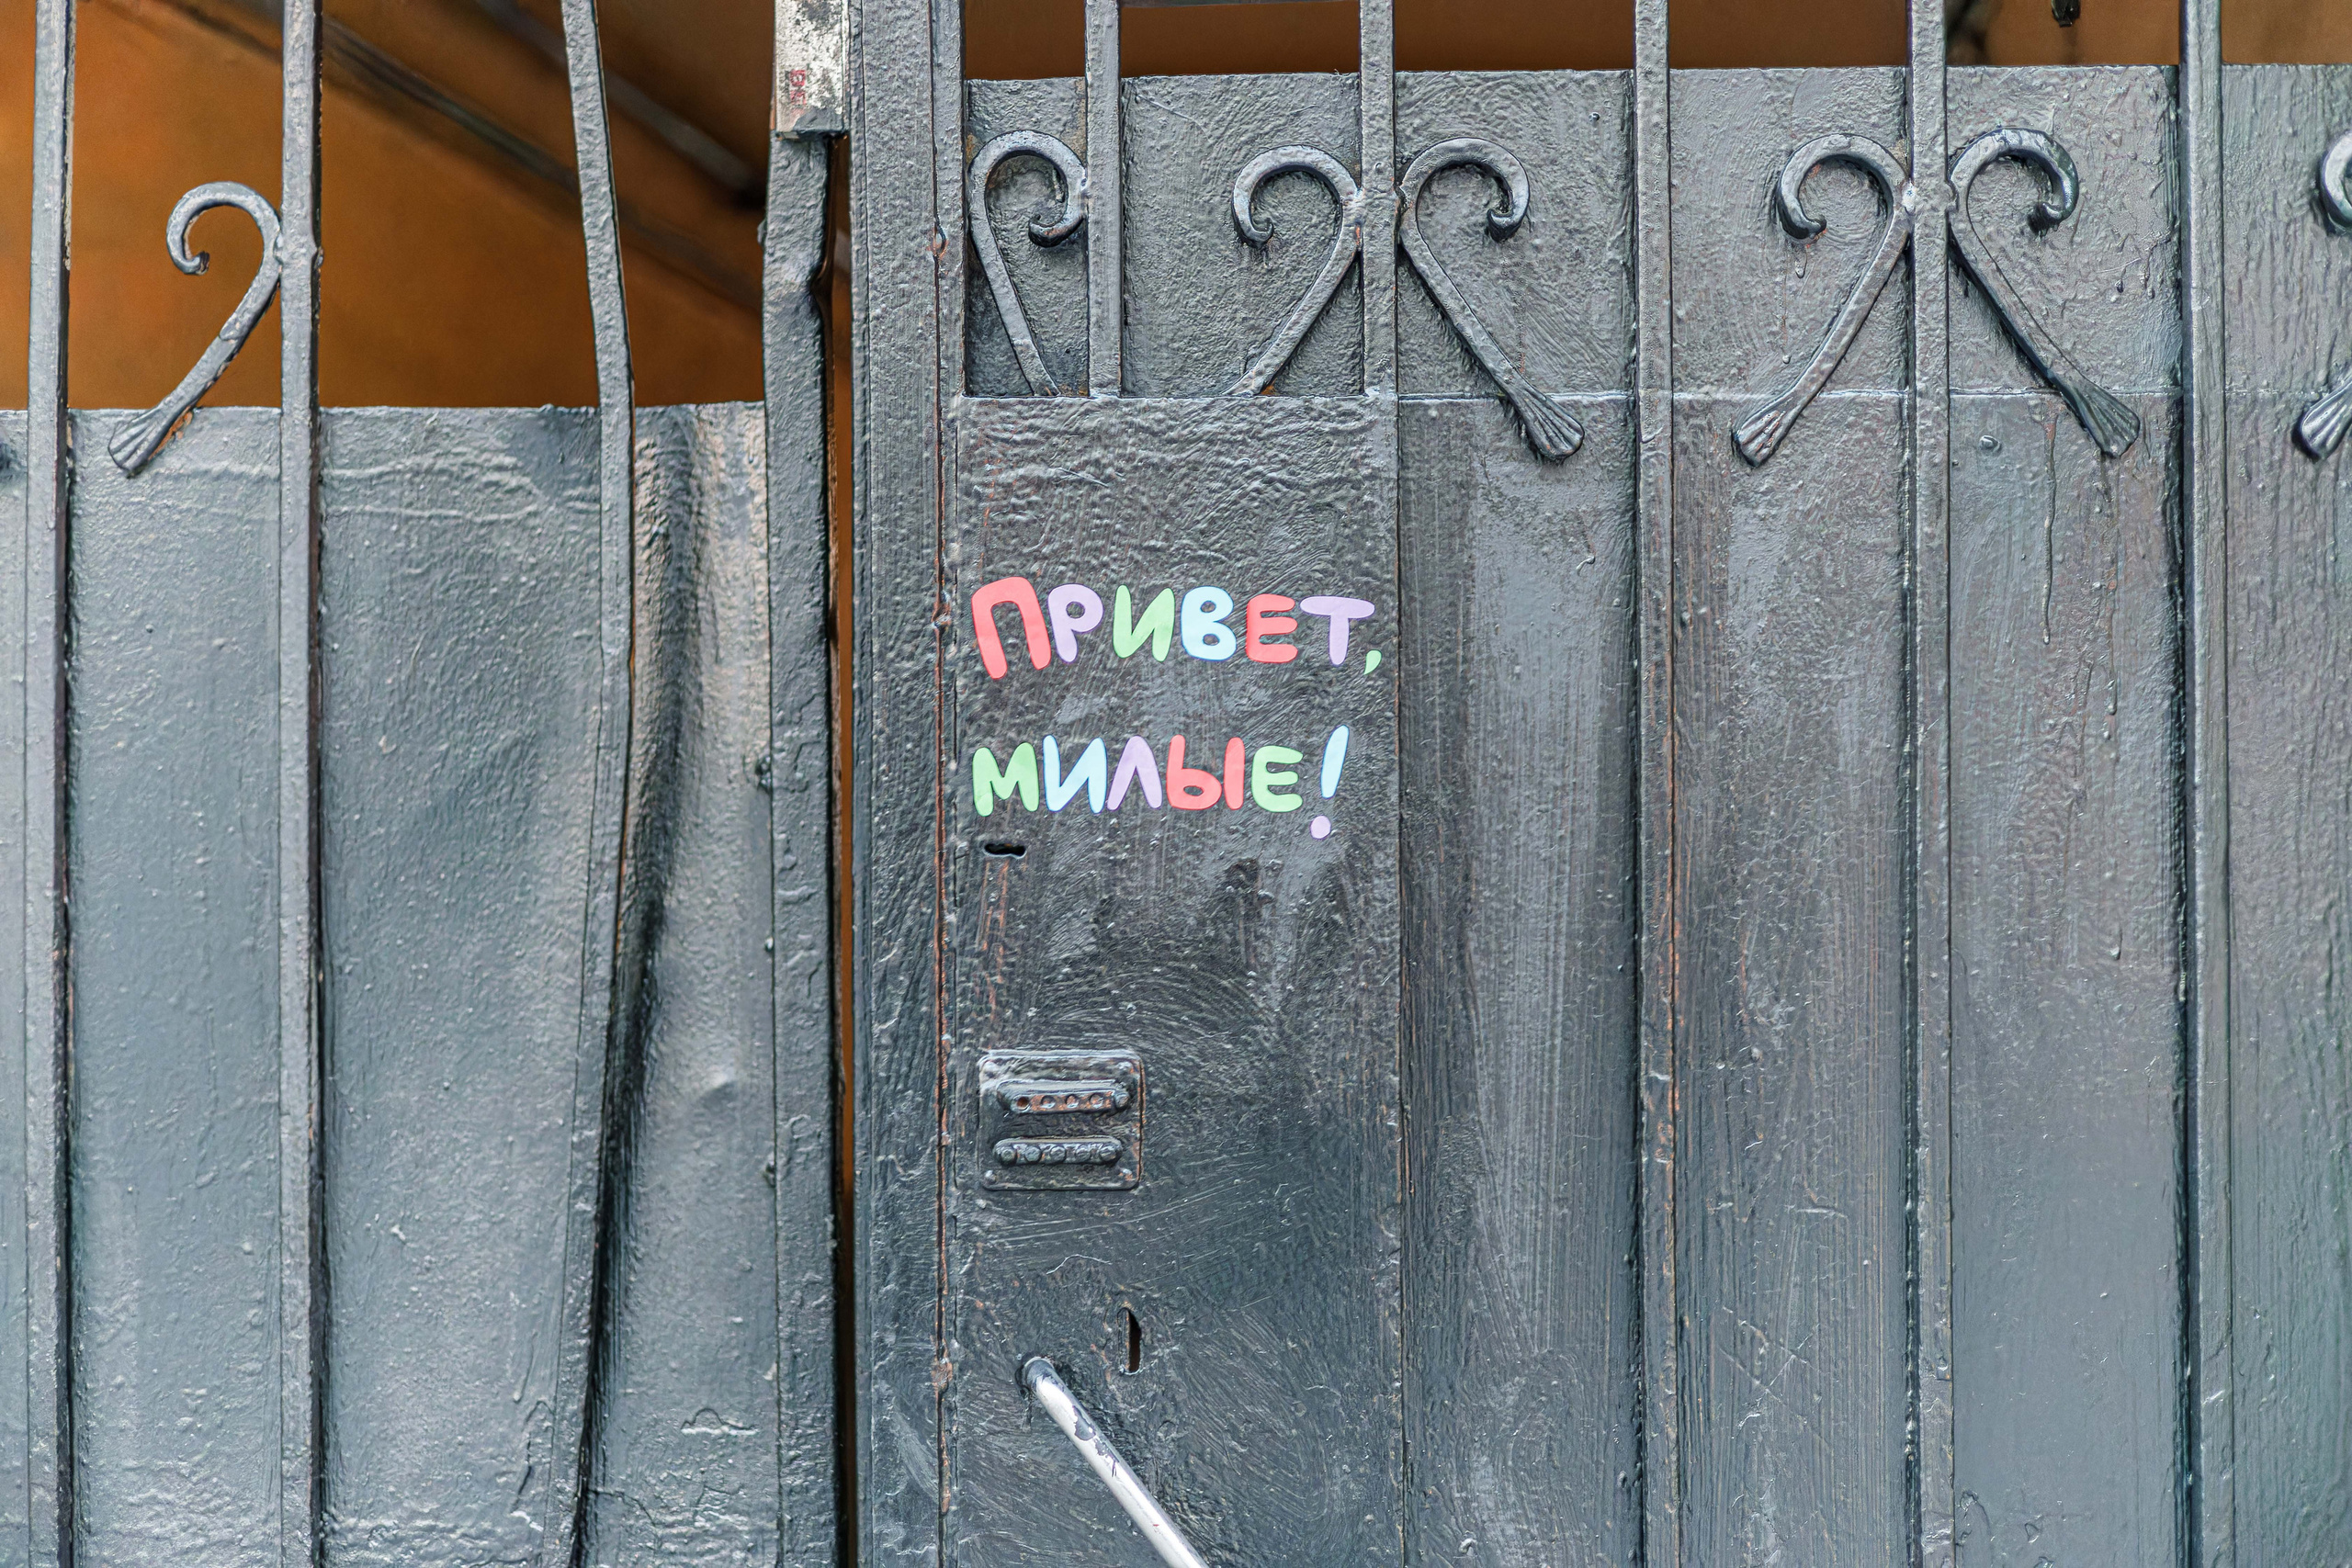 ПРИВЕТ,
МИЛЫЕ!